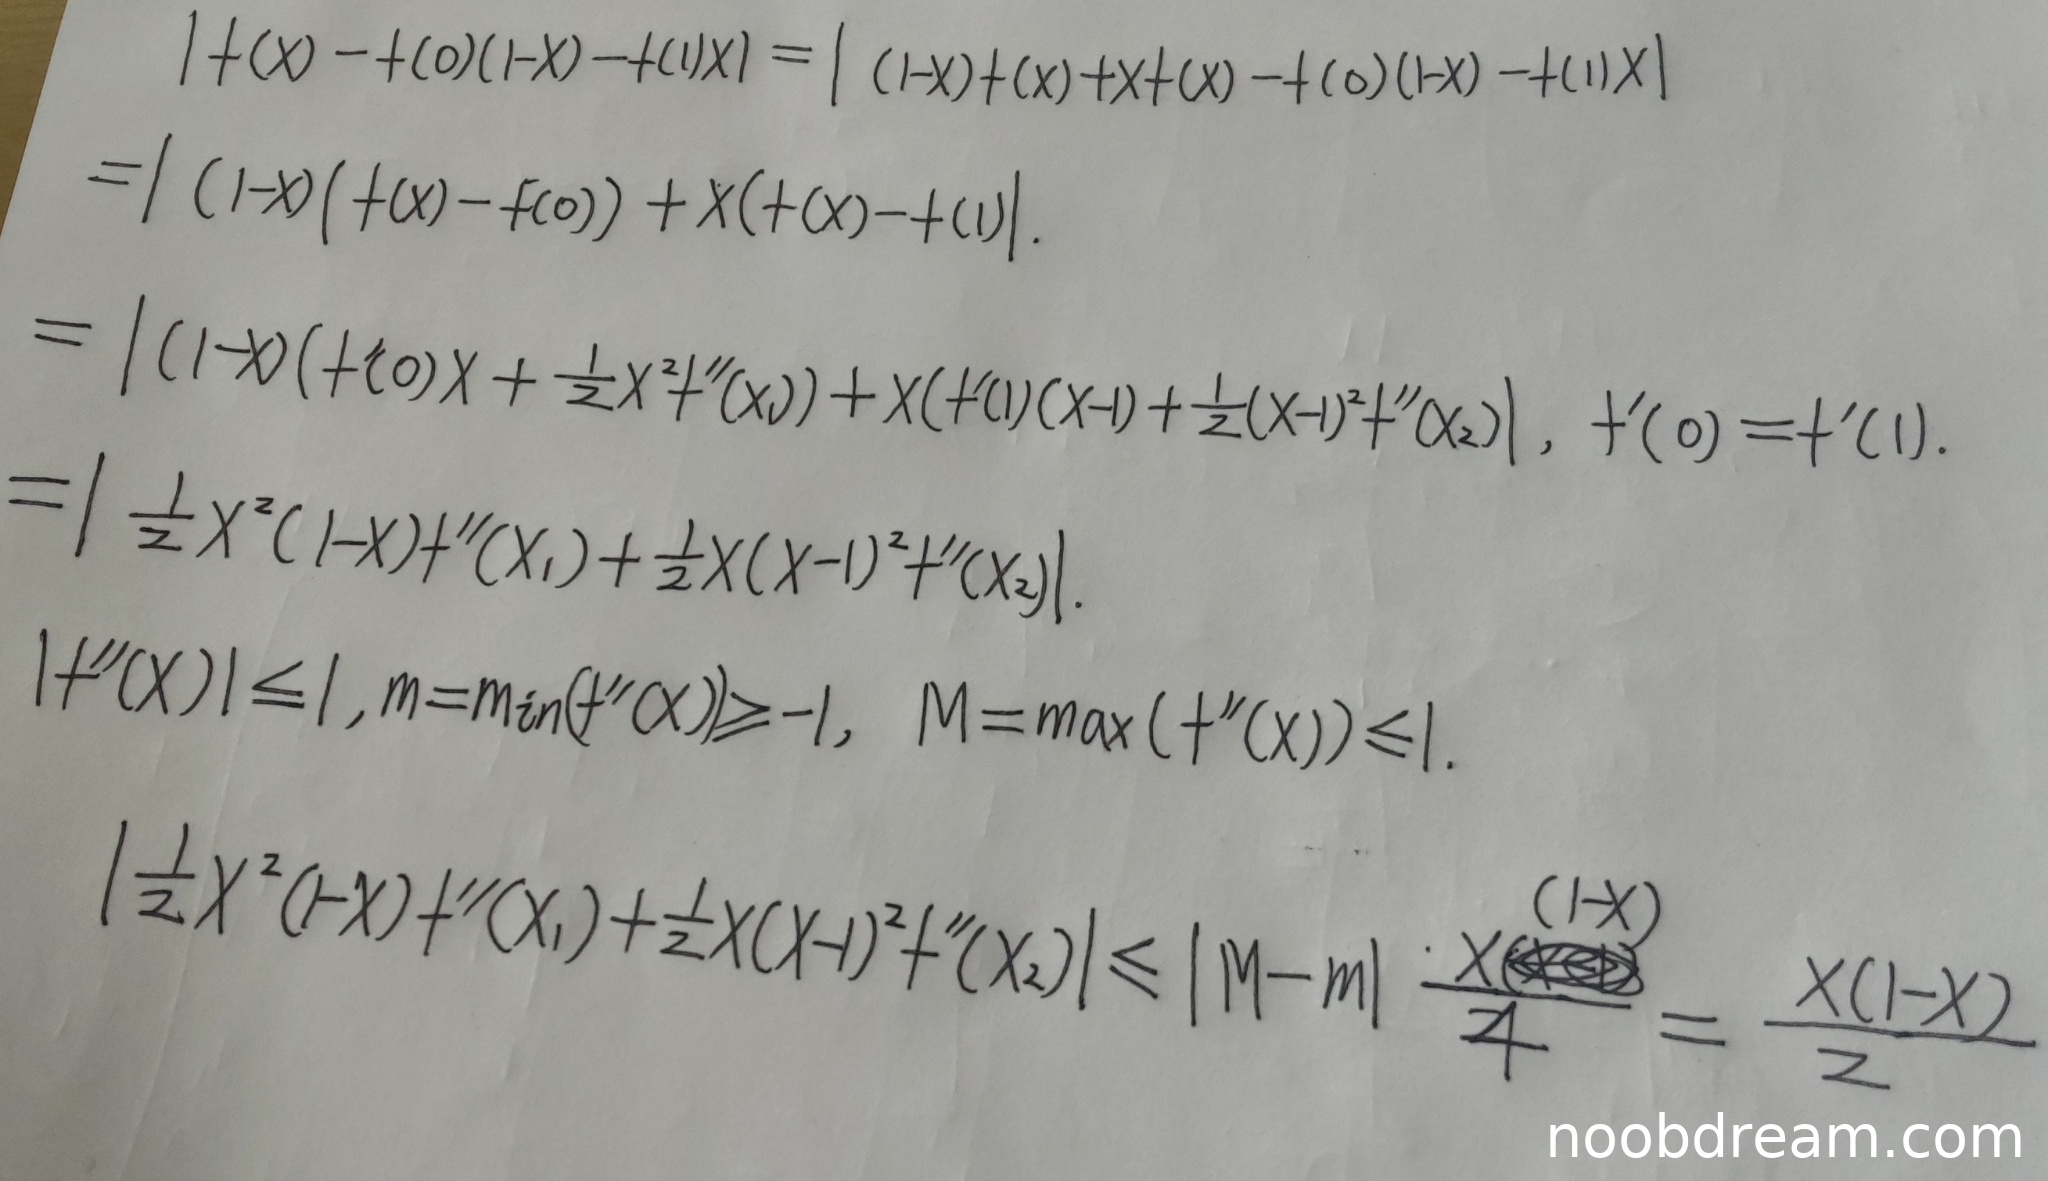 |f(x) - f(0)(1-x) - f(1)x| = | (1-x)f(x) + xf(x) - f(0)(1-x) - f(1)x|
= | (1-x)(f(x) - f(0)) + x(f(x) - f(1)|.
= | (1-x)(f'(0)x + 1/2 x²f''(x₁)) + x(f'(1)(x-1) + 1/2 (x-1)²f''(x₂)|, f'(0) = f'(1).
= | 1/2 x²(1-x)f''(x₁) + 1/2 x(x-1)²f''(x₂)|.
|f''(x)| ≤ 1, m = min(f''(x)) ≥ -1, M = max(f''(x)) ≤ 1.
| 1/2 x²(1-x)f''(x₁) + 1/2 x(x-1)²f''(x₂)| ≤ |M-m| · x(1-x)/4 = x(1-x)/2
noobdream.com